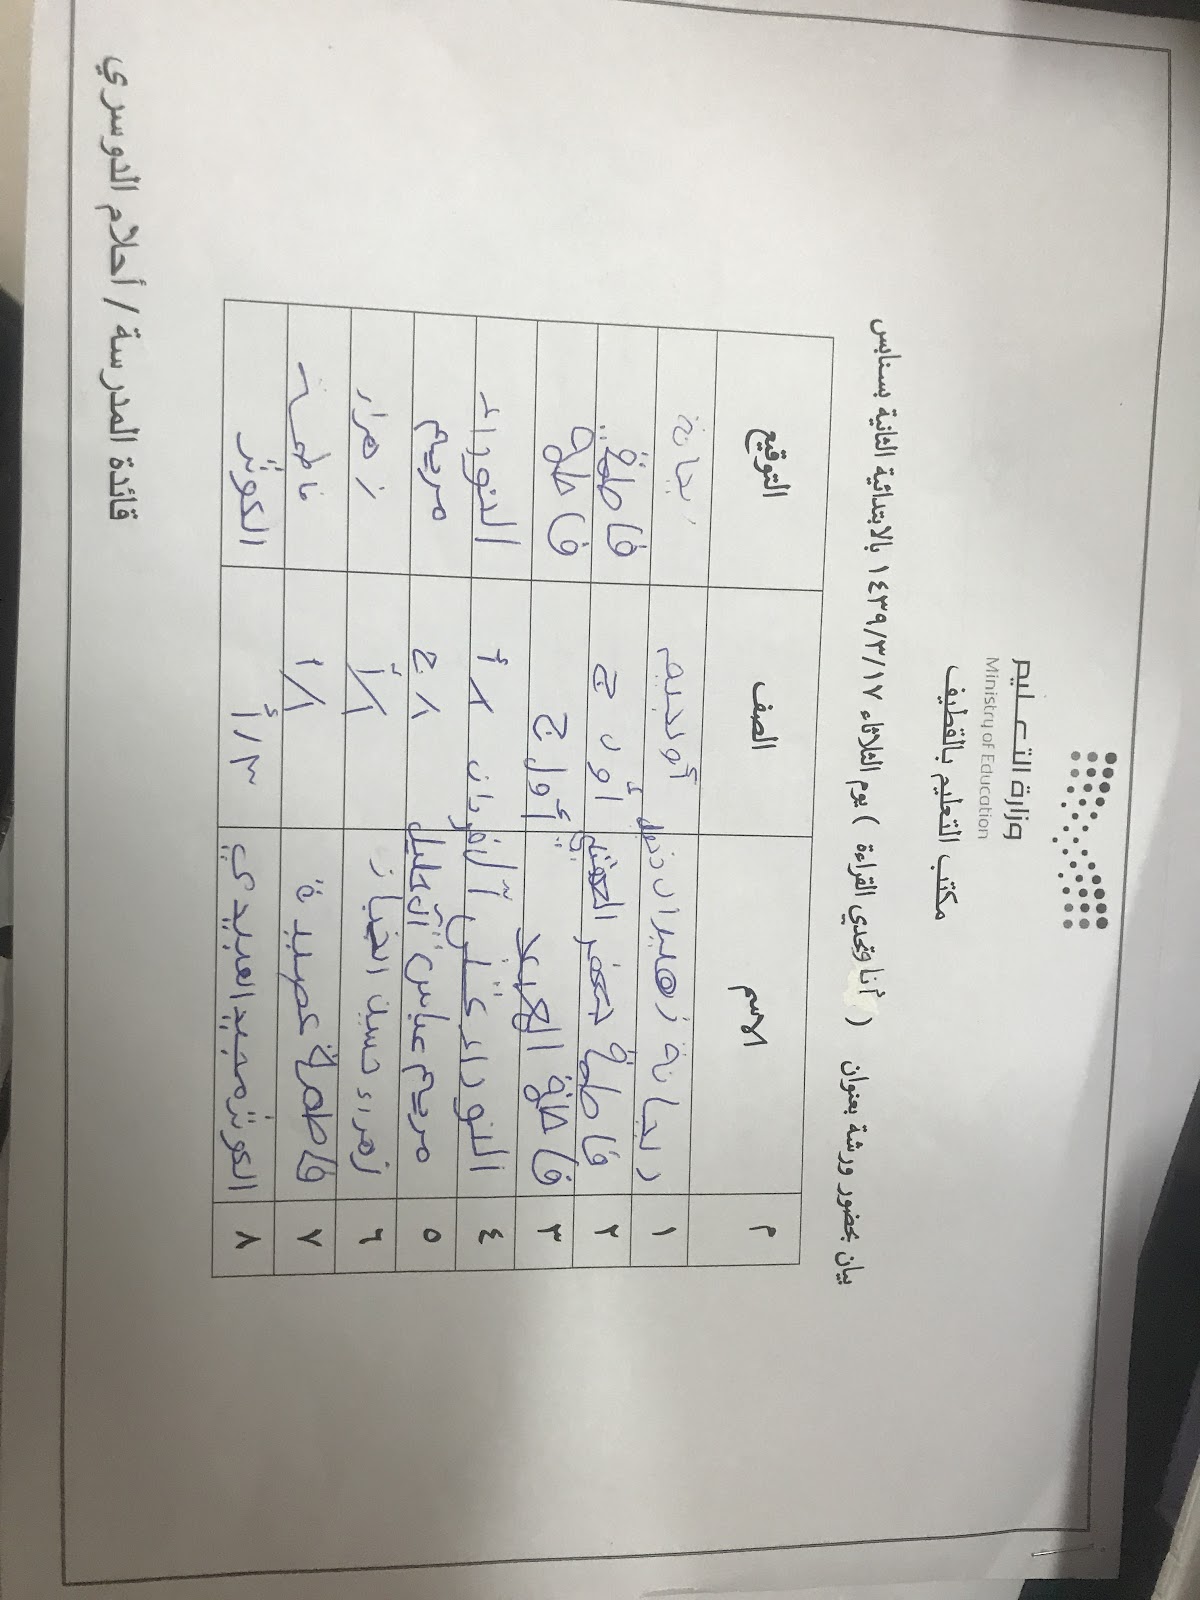 وزارة التعليم
Ministry of Education
مكتب التعليم بالقطيف
بيان بحضور ورشة بعنوان ( أنا وتحدي القراءة ) يوم الثلاثاء ١٤٣٩/٣/١٧ بالابتدائية الثانية بسنابس
م الاسم الصف التوقيع
١
٢ فاطمة جعفر أول ج فاطمة
٣ فاطمة العبيد أول ج فاطمة
٤ النوراء علي آل فردان ١/أ النوراء
٥ مريم عباس آل خليل ١/ج مريم
٦ زهراء حسين الخباز ١/أ زهراء
٧ فاطمة عصيدة ١/١ فاطمة
٨ الكوثر مجيد العبيدي ٣/أ الكوثر
قائدة المدرسة / أحلام الدوسري